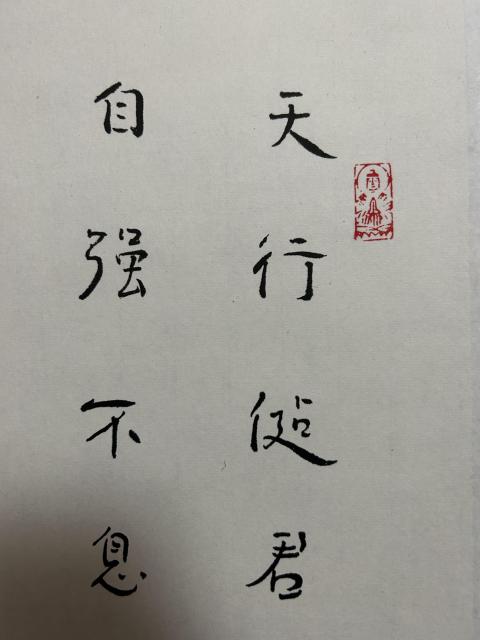 天行健君
自强不息